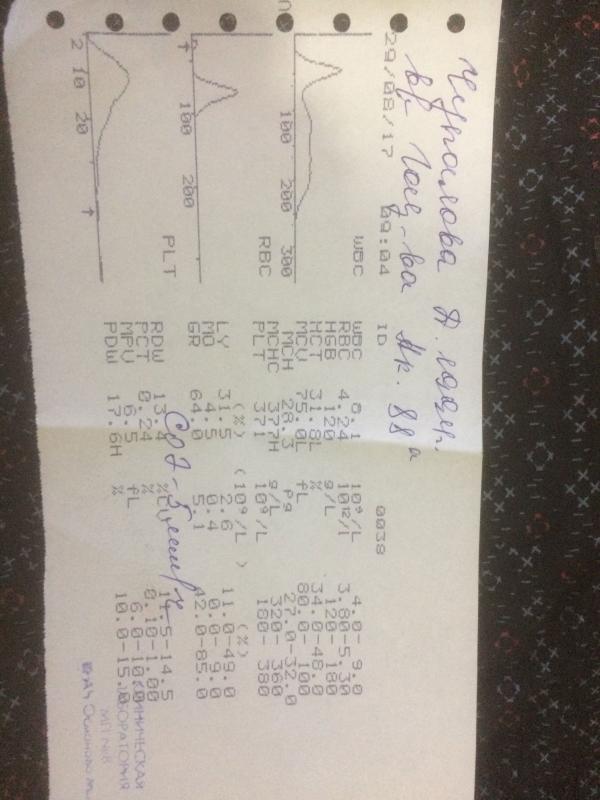 Чупалова А.
29/08/17 09:04 ID 0038
WBC 8.1 10⁹/L 4.0- 9.0
RBC 4.24 10¹²/l 3.80-5.30
HGB 120 g/L 120- 180
HCT 31.8L % 34.0-48.0
MCV 75.0L fL 80.0- 100
MCH 28.3 Pg 27.0-32.0
MCHC 377H g/L 320- 360
PLT 371 10⁹/L 180- 380
(%) (10⁹/L ) (%)
LY 31.5 2.6 11.0-49.0
MO 4.5 0.4 0.0-9.0
GR 64.0 5.1 42.0-85.0
RDW 13.4 % 11.5-14.5
PCT 0.24 % 0.10-1.00
MPV 6.5 fL 6.0-10.0
PDW 17.6H % 10.0-15.0
СОЭ-5мм/ч
WBC
100 200 300
RBC
100 200
PLT
2 10 20
КЛИНИЧЕСКАЯ
ЛАБОРАТОРИЯ
МП №8